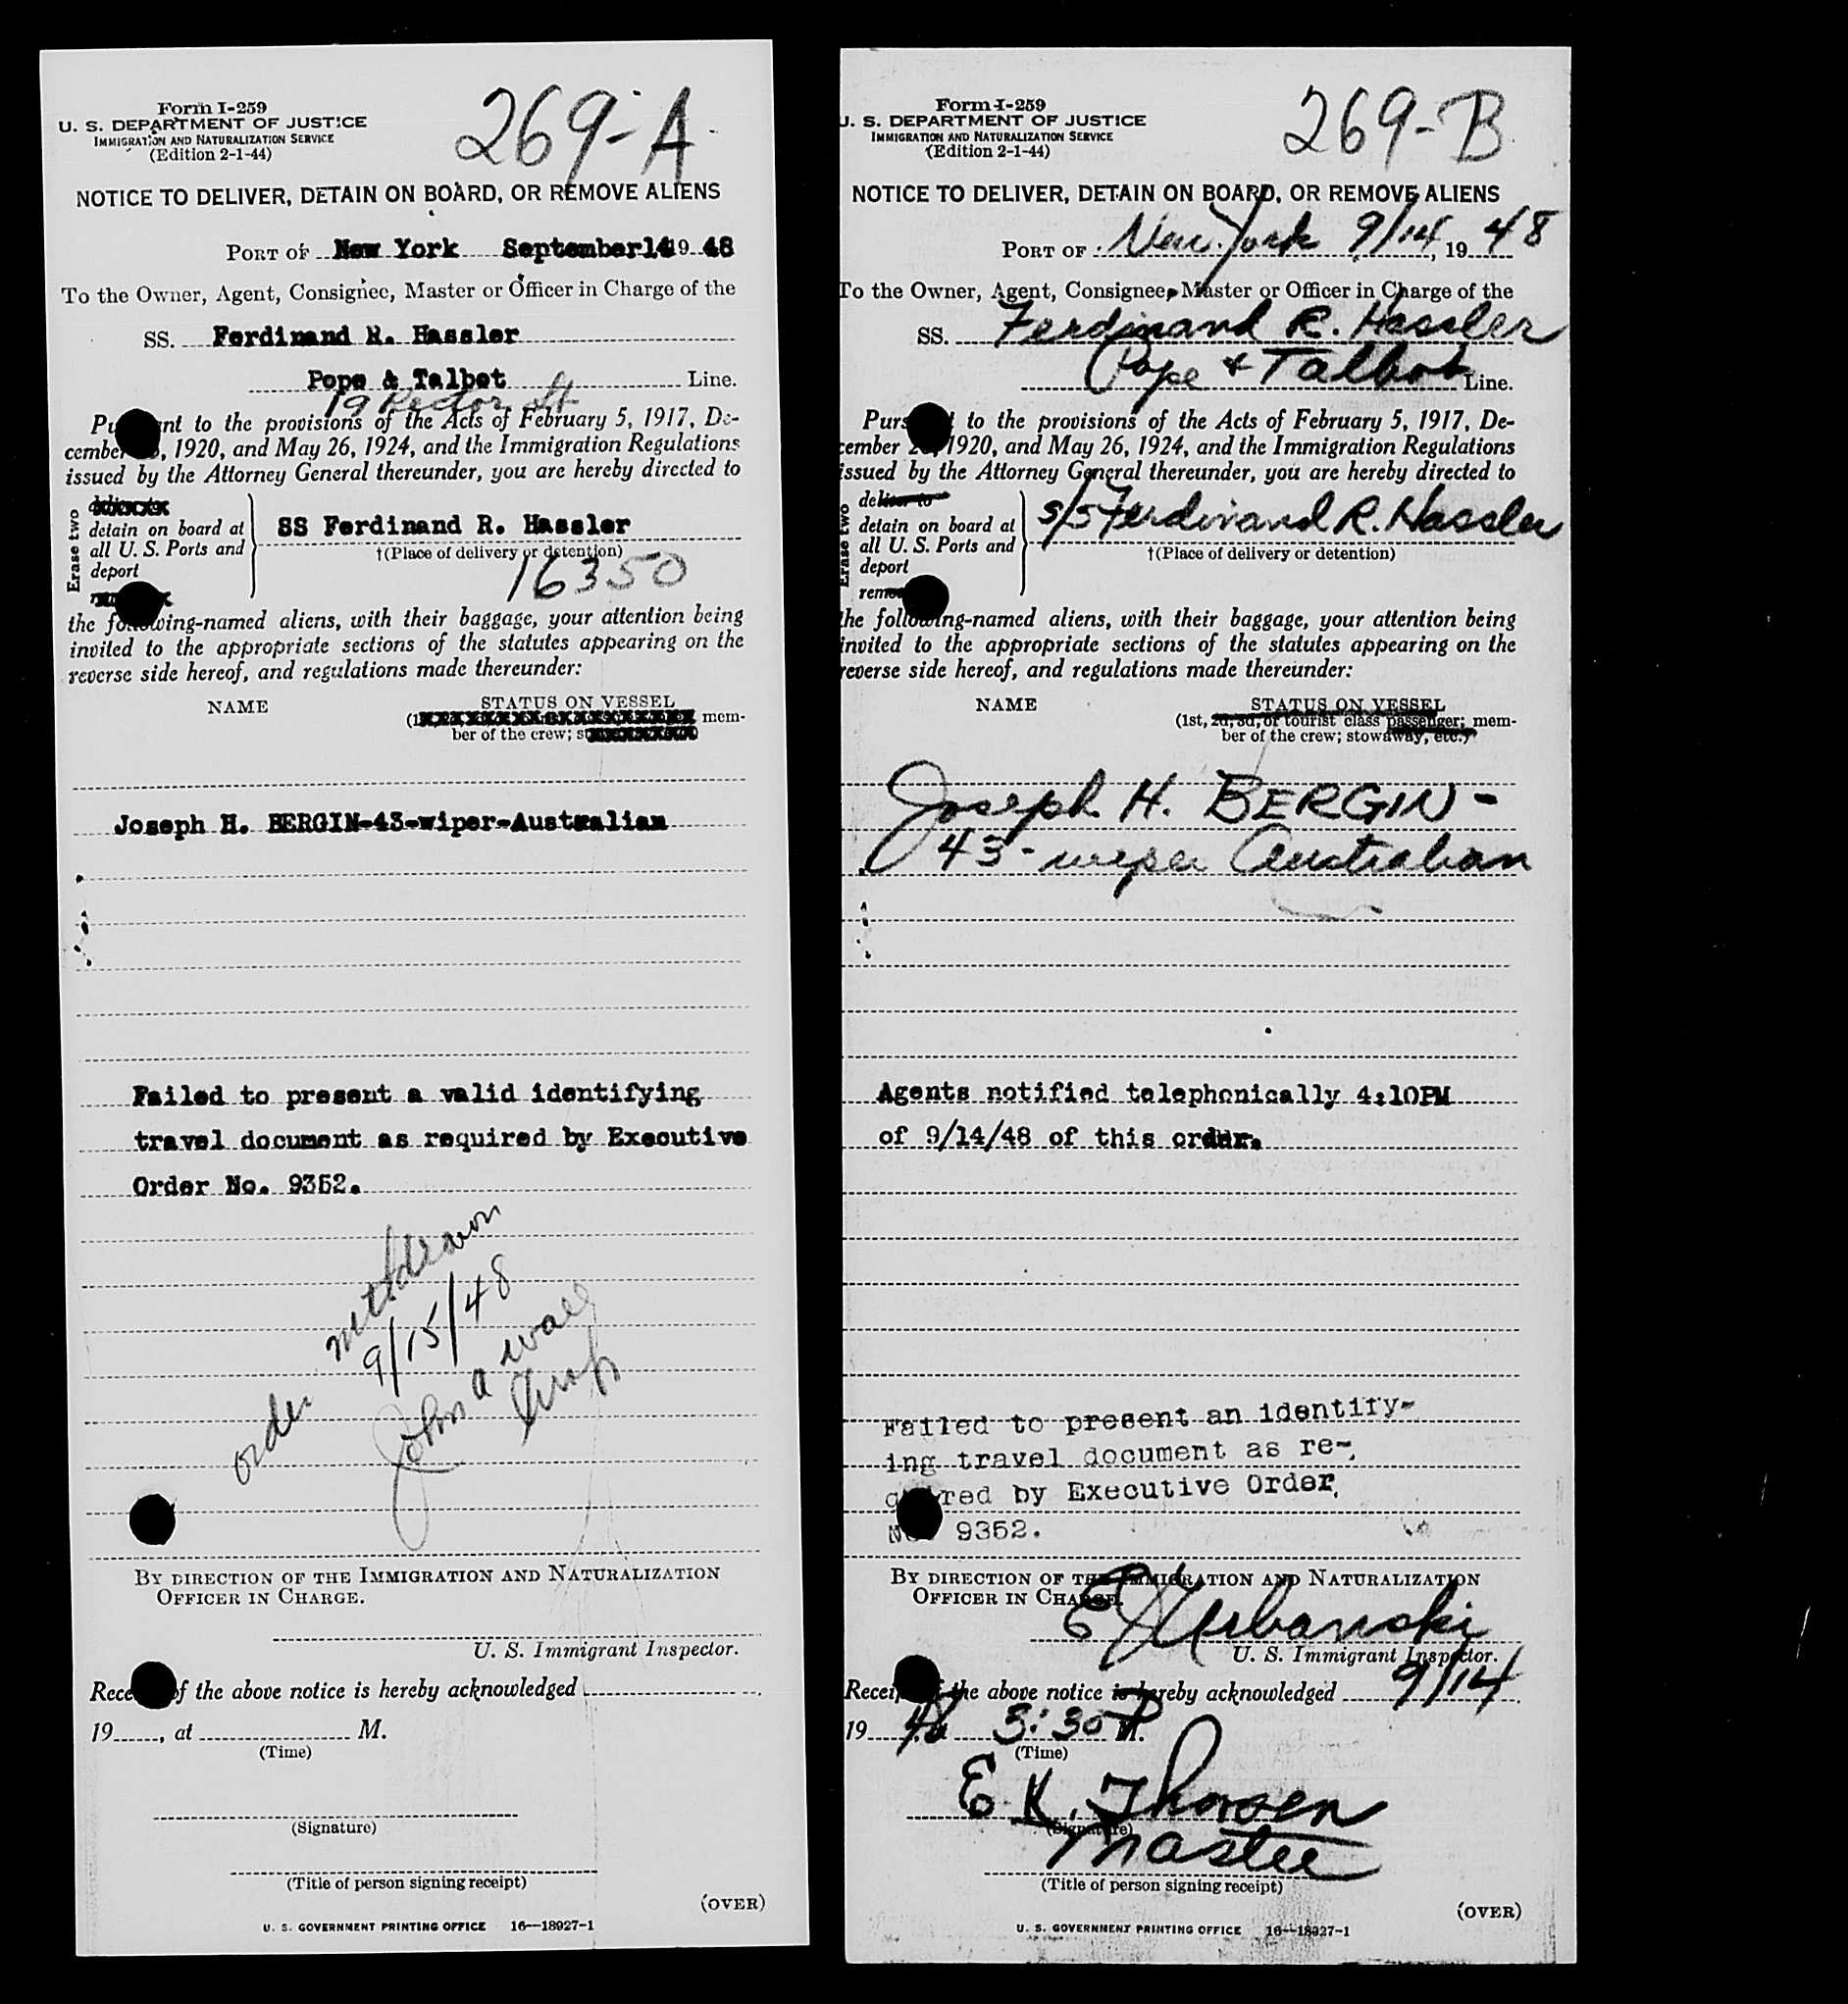 Form I-259
U. S. DEPARTMENT OF JUSTICE
IMMIGRATION AND NATURALIZATION SERVICE
(Edition 2-1-44)
269-A
NOTICE TO DELIVER, DETAIN ON BOARD, OR REMOVE ALIENS
PORT OF New York September 14 19 48
To the Owner, Agent, Consignee, Master or Officer in Charge of the
SS. Ferdinand R. Hassler
Pope & Talbot Line.
19 Rector St
to the provisions of the Acts of February 5, 1917, De-
cember , 1920, and May 26, 1924, and the Immigration Regulations
issued by the Attorney General thereunder, you are hereby directed to
Erase two
detain on board at
all U. S. Ports and
deport
SS Ferdinand R. Hassler
†(Place of delivery or detention)
16350
the following-named aliens, with their baggage, your attention being
invited to the appropriate sections of the statutes appearing on the
reverse side hereof, and regulations made thereunder:
NAME
STATUS ON VESSEL
mem-
ber of the crew;
Joseph H. BERGIN-43-wiper-Australian
Failed to present a valid identifying
travel document as required by Executive
Order No. 9352.
order withdrawn
9/15/48
John A
BY DIRECTION OF THE IMMIGRATION AND NATURALIZATION
OFFICER IN CHARGE.
U. S. Immigrant Inspector.
of the above notice is hereby acknowledged
19 , at M.
(Time)
(Signature)
(Title of person signing receipt)
(OVER)
U. S. GOVERNMENT PRINTING OFFICE 16—18927-1
Form I-259
U. S. DEPARTMENT OF JUSTICE
IMMIGRATION AND NATURALIZATION SERVICE
(Edition 2-1-44)
269-B
NOTICE TO DELIVER, DETAIN ON BOARD, OR REMOVE ALIENS
PORT OF New York 9/14, 19 48
To the Owner, Agent, Consignee, Master or Officer in Charge of the
SS. Ferdinand R. Hassler
Pope & Talbot Line.
to the provisions of the Acts of February 5, 1917, De-
cember 1920, and May 26, 1924, and the Immigration Regulations
issued by the Attorney General thereunder, you are hereby directed to
Erase two
deliver to
detain on board at
all U. S. Ports and
deport
remove
S/S Ferdinand R. Hassler
†(Place of delivery or detention)
the following-named aliens, with their baggage, your attention being
invited to the appropriate sections of the statutes appearing on the
reverse side hereof, and regulations made thereunder:
NAME
STATUS ON VESSEL
(1st, 2d, 3d, or tourist class passenger; mem-
ber of the crew; stowaway, etc.)
Joseph H. BERGIN -
43 - wiper Australian
Agents notified telephonically 4:10PM
of 9/14/48 of this order.
Failed to present an identify-
ing travel document as re-
quired by Executive Order
No. 9352.
BY DIRECTION OF THE IMMIGRATION AND NATURALIZATION
OFFICER IN CHARGE.
Urbanski
U. S. Immigrant Inspector.
the above notice is hereby acknowledged 9/14
19 48 3:30 P M.
(Time)
E K. Thorsen
(Signature)
Master
(Title of person signing receipt)
(OVER)
U. S. GOVERNMENT PRINTING OFFICE 16—18927-1